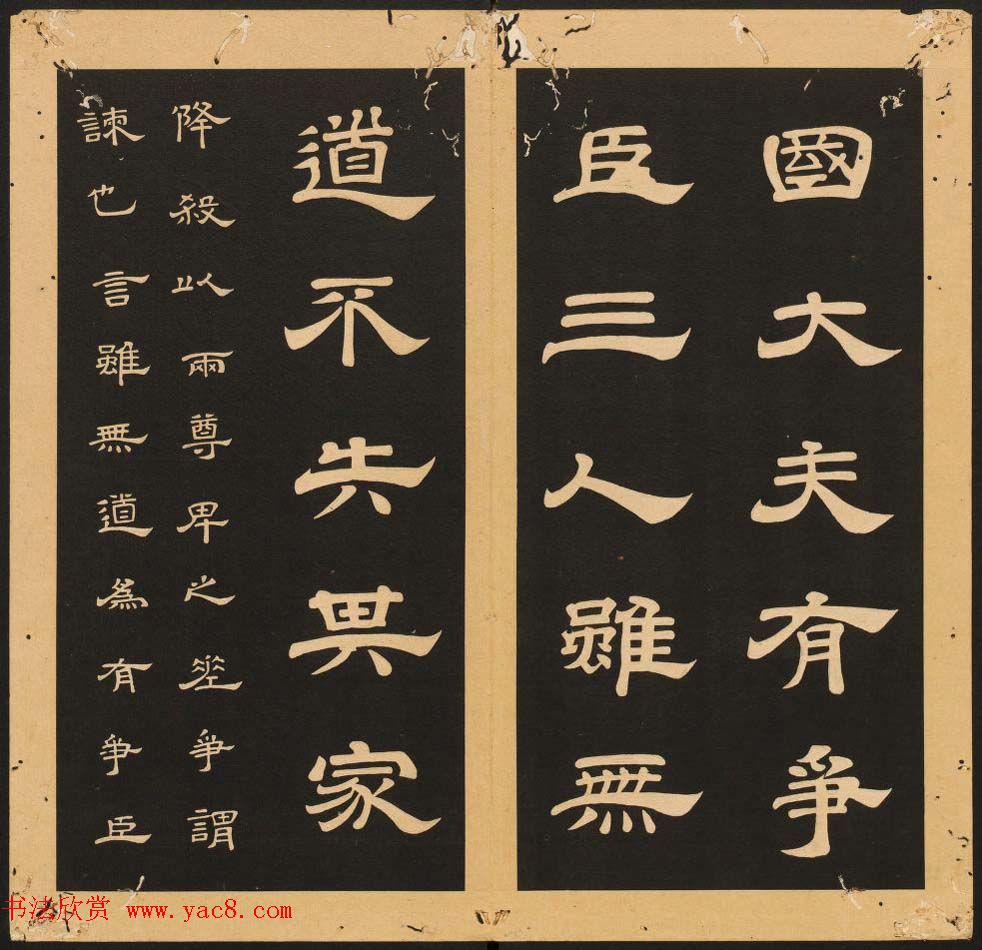 國大夫有爭
臣三人雖無
道不失其家
降殺以兩尊卑之差爭謂
諫也言雖無道為有爭臣
书法欣赏 www.yac8.com